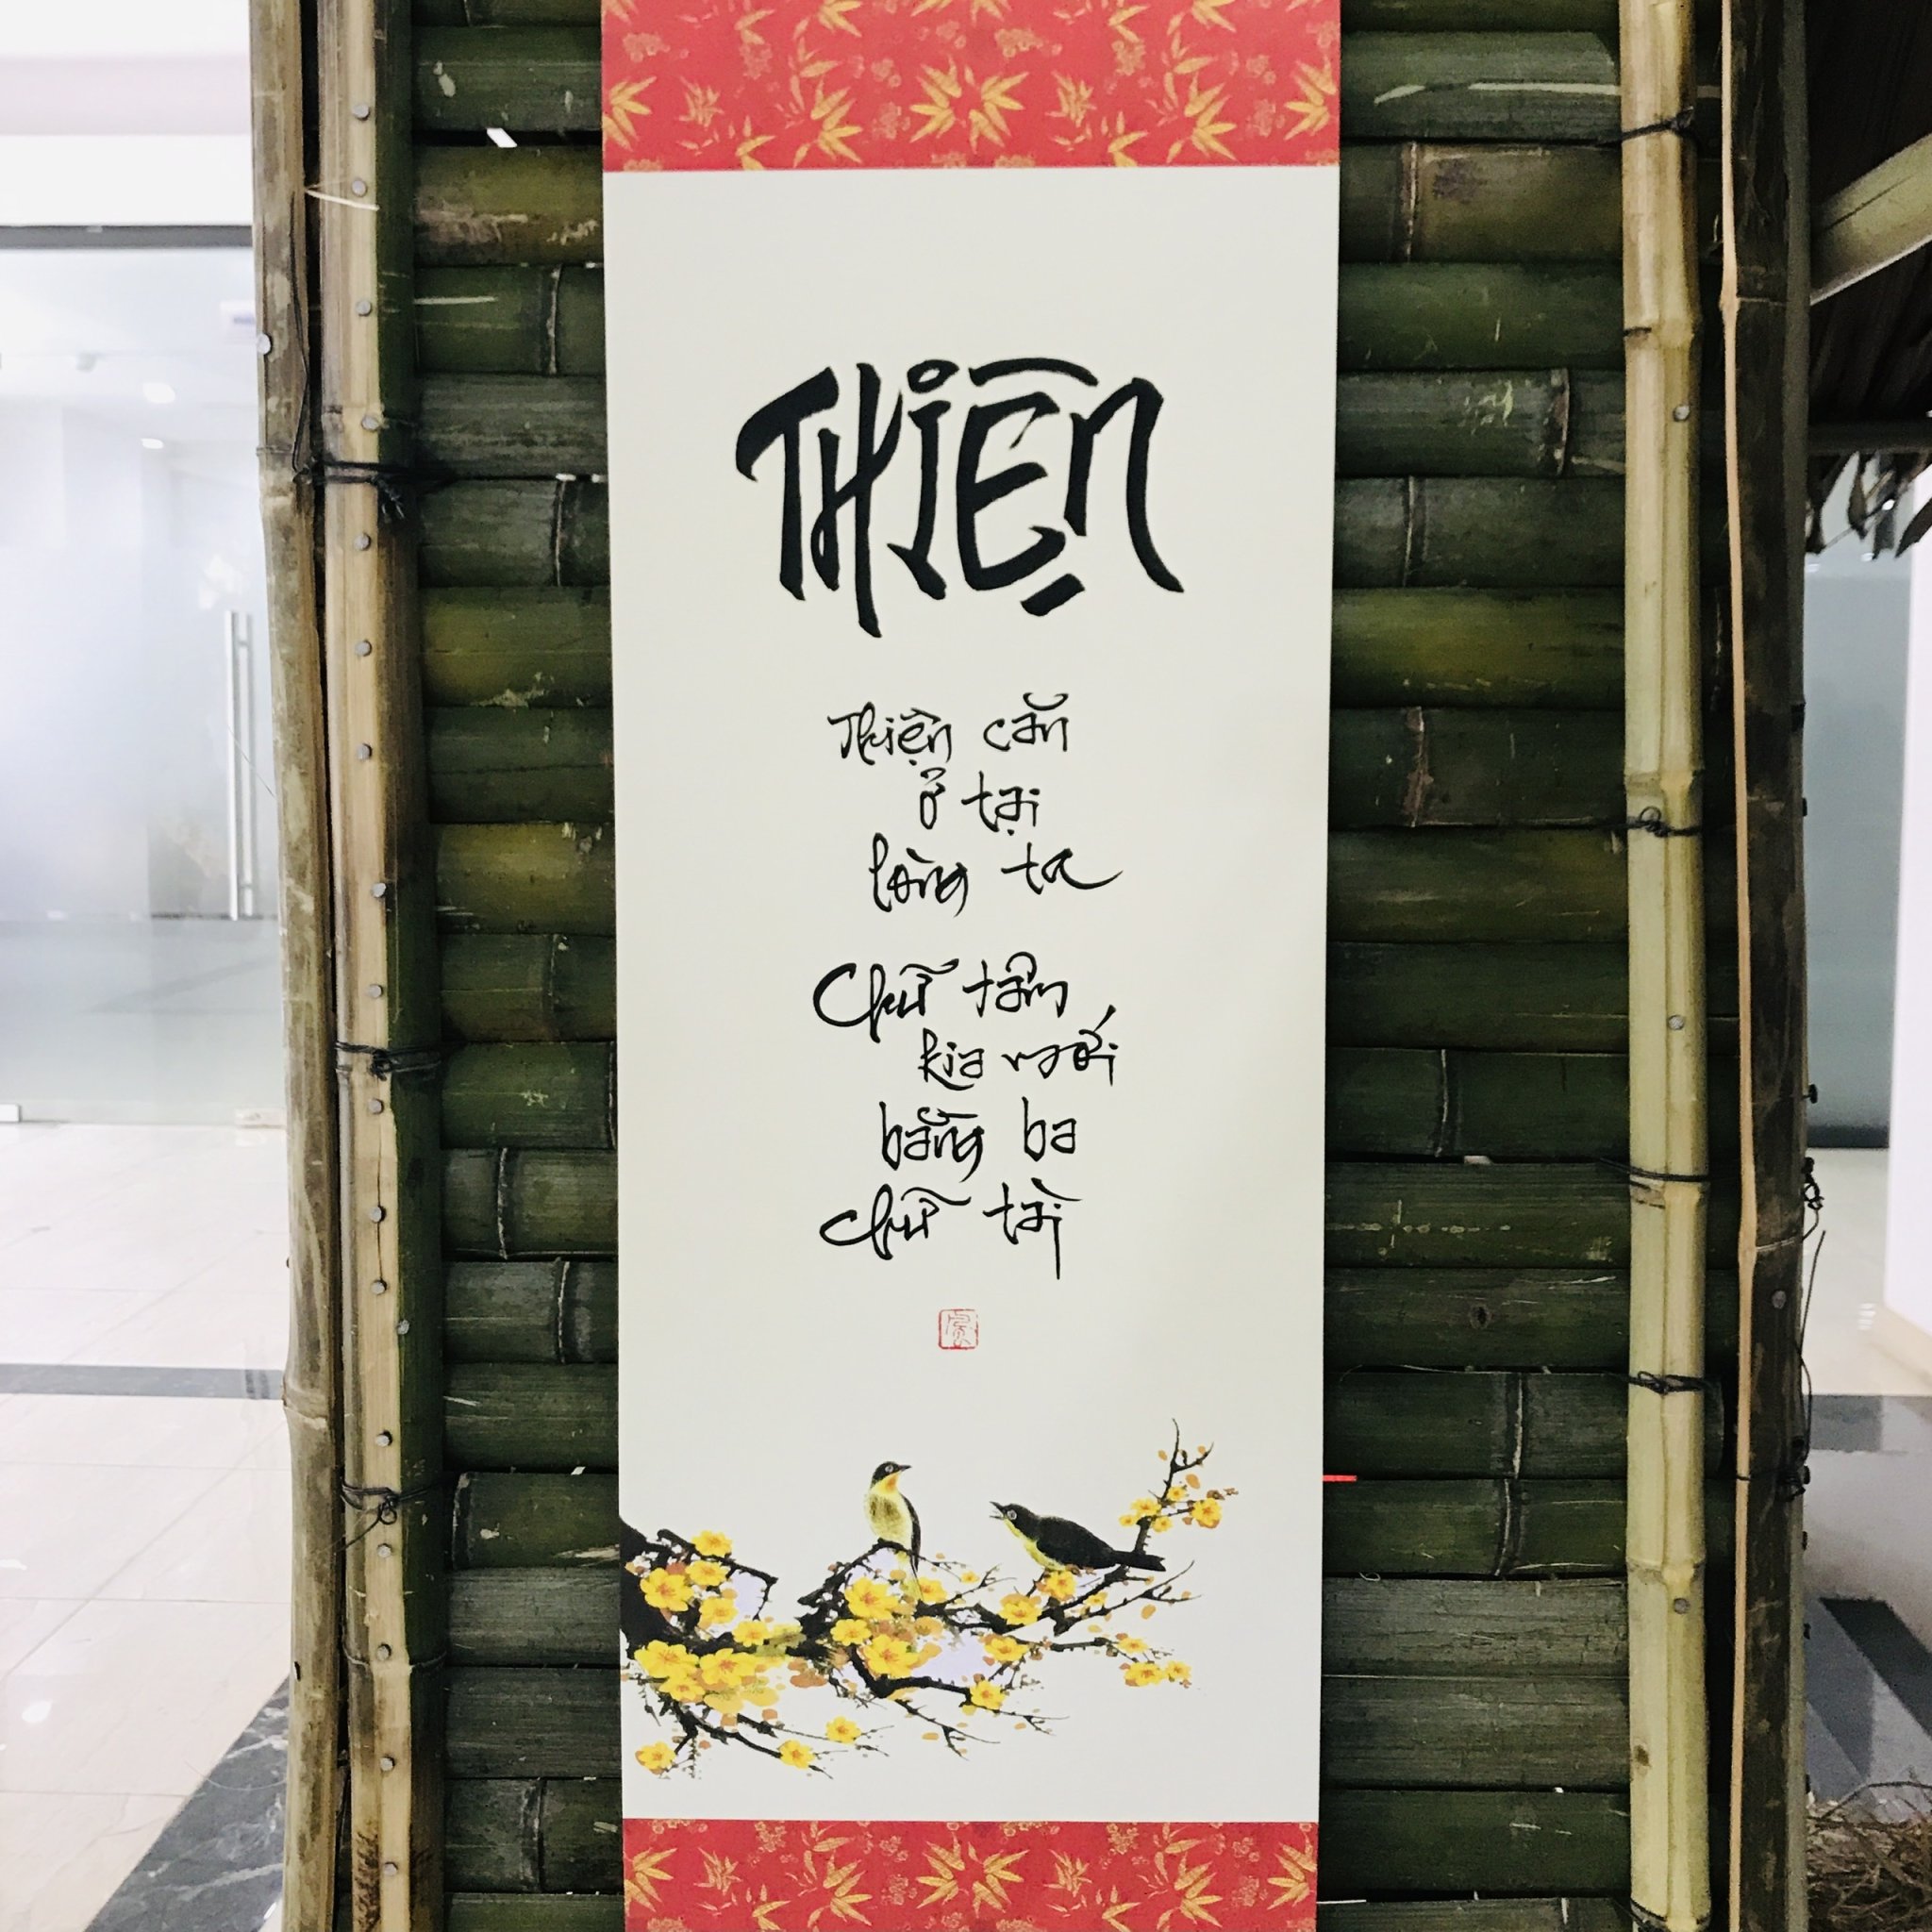 THIỆN
Thiện căn
ở tại
lòng ta
Chữ tâm
kia mới
bằng ba
chữ tài